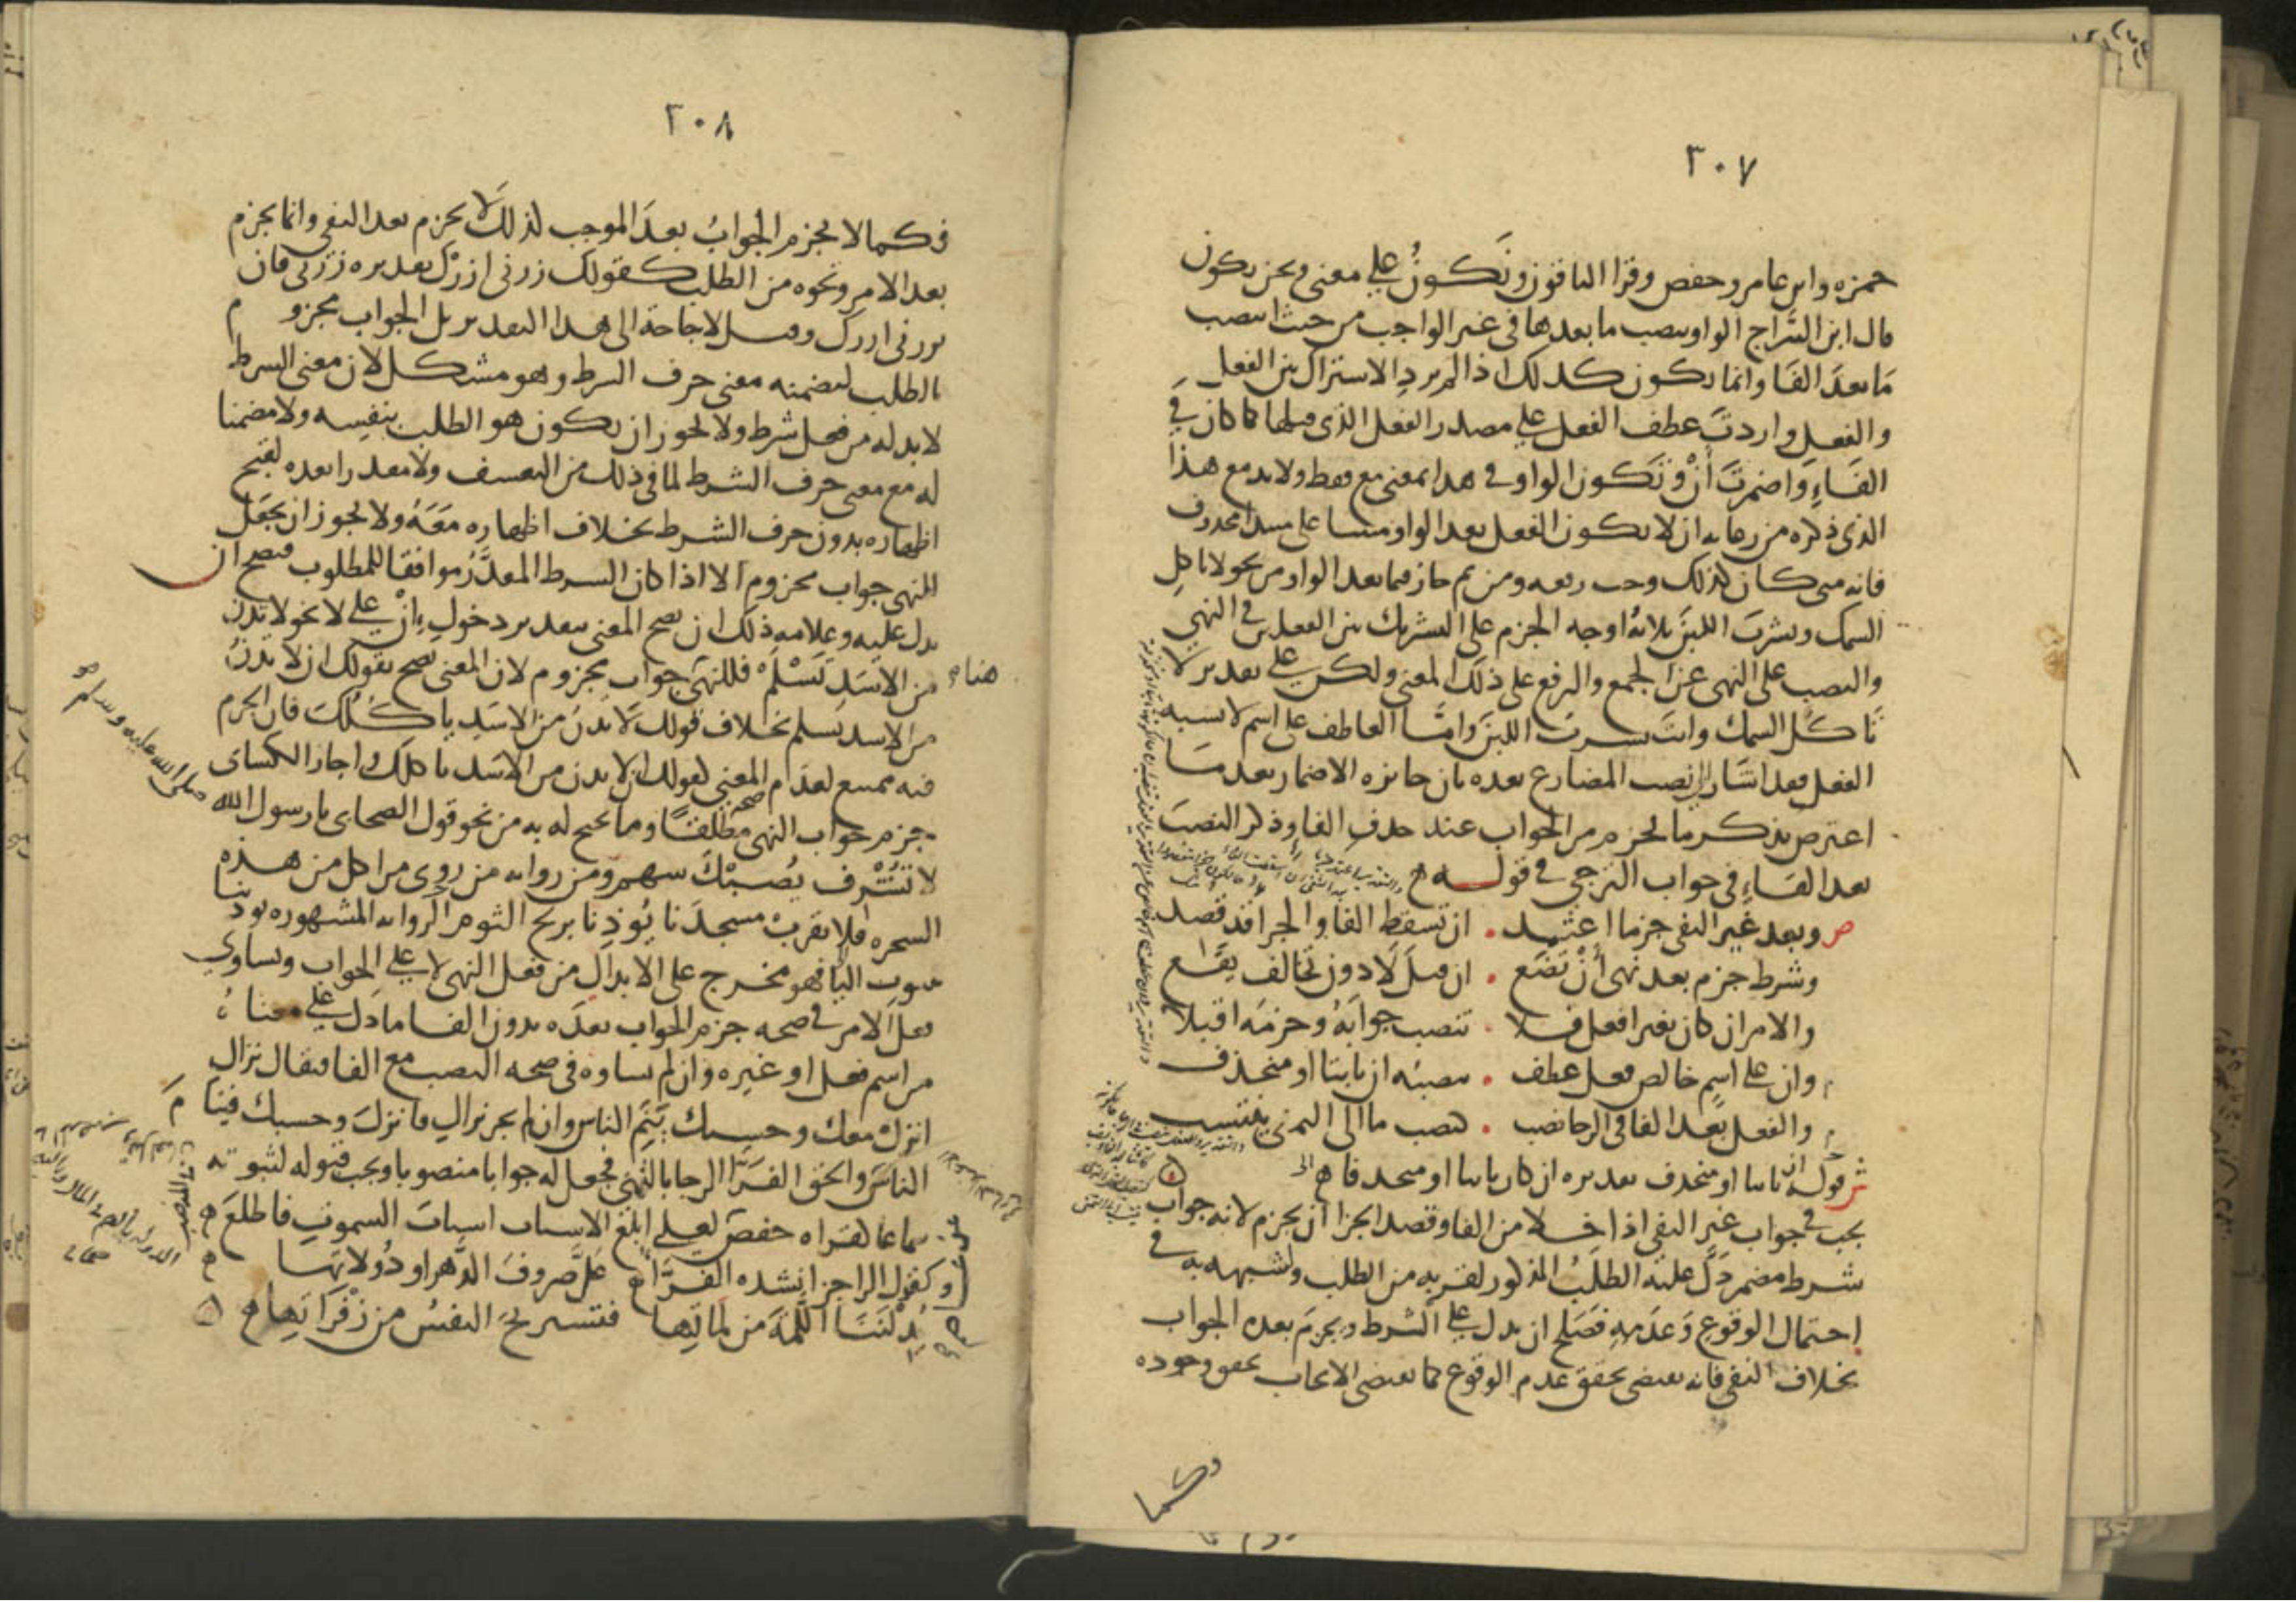 ٣٠٧
حمزه وابن عامر وحفص وقرا الباقون ونكونُ على معنى ونحن نكون
قال ابن السَّراج الواو ينصب ما بعدها في غير الواجب من حيث انتصب
مَا بعدَ الفَا وانما يكون كذلك اذا لم يرد الاشتراك بين الفعل
والفعل واردتَ عطف الفعل على مصدر الفعل الذي قبلها كما كان في
الفَاءِ وَاضمرتَ أنْ وتكون الواو في هذا بمعنى مع فقط ولا بد مع هذا
الذي ذكره من رعايه ان لا يكون الفعل بعد الواو مبنيا على مبتدا محذوف
فانه متى كان كذلك وجب رفعه ومن ثم جاز فيما بعد الواو من نحو لا تاكلِ
السمك وتشرب اللبنَ ثلاثة اوجه الجزم على التشريك بين الفعلين في النهي
والنصب على النهي عن الجمع والرفع على ذلك المعنى ولكن على تقدير لا
تَاكل السمك وانت تشربُ اللبنَ وامَّا العاطف على اسم لا يشبه
الفعل فقد اشَار الى نصب المضارع بعده بان جايزه الاضمار بعد مَا
اعترض بذكر ما يجزم من الجواب عند حذف الفا وذكر النصبَ
بعد الفَاءِ في جواب الترجي في قوله
ص وبعد غير النفى جزما اعتمد . ان تسقط الفا والجزا قد قصد
وشرط جزم بعد نهى أنْ تضَع . ان قبلَ لَا دون تخالف يقَع
والامر ان كان بغير افعل فلا . تنصب جوابَهُ وجزمَه اقبلا
وان على اسمٍ خالص فعل عطف . تنصبُه ان ثابتا او منحذف
والفعل بَعد الفا في الرجا نصب . كنصب ما الى التمنى ينتسب
ش قوله ان ثابتا او منحذف تقديره ان كان ثابتا او منحذفا
يجب في جواب غير النفى اذا خلا من الفا وقصد الجزا ان يجزم لانه جواب
شرط مضمر دَلَّ عليه الطلبُ المذكور لقربه من الطلب وشبهه به في
احتمال الوقوع وَعدَمِه فصَلح ان يدل على الشرط ويجزمَ بعده الجواب
بخلاف النفى فانه يقتضى تحقق عدم الوقوع كما يقتضى الايجاب تحقق وجوده
وكما
٢٠٨
فكما لا يجزم الجوابُ بعدَ الموجب كذلك لا يجزم بعد النفى وانما يجزم
بعد الامر ونحوه من الطلب كقولك زرنى ازرْك تقديره زرنى فان
تزرنى ازرك وقيل لا حاجة الى هذا التقدير بل الجواب مجزوم
بالطلب لتضمنه معنى حرف الشرط وهو مشكل لان معنى الشرط
لا بد له من فعل شرط ولا يجوز ان يكون هو الطلب بنفسه ولا مضمنا
له مع معنى حرف الشرط لما في ذلك من التعسف ولا مقدرا بعده لقبح
اظهاره بدون حرف الشرط بخلاف اظهاره مَعَهُ ولا يجوز ان يجعَل
للنهى جواب مجزوم الا اذا كان الشرط المقدَّرُ موافقا للمطلوب فيصح ان
يدل عليه وعلامه ذلك ان يصح المعنى بتقدير دخول إِنْ على لا نحو لا تدن
من الاسَدِ تَسْلَمْ فللنهى هنا جواب مجزوم لان المعنى يصح بقولك ان لا تدنُ
من الاسد تسلم بخلاف قولك لا تدنُ من الاسَد ياكُلُك فان الجزم
فيه ممتنع لعدَم صحة المعنى لقولك ان لا تدن من الاسَد ياكلك واجاز الكساى
جزم جواب النهى مطلقًا ومما يحتج له به من نحو قول الصحابى يا رسول الله صلى الله عليه وسلم
لا تُشْرف يُصبْكَ سهم ومن روايه من روى من اكل من هذه
الشجره فلا يقربْ مسجدَنا يُوذنا بريح الثوم الروايه المشهوره يوذينا
بثبوت اليا فهو مخرج على الابدال من فعل النهى لا على الجواب ويساوى
فعلَ الامر في صحه جزم الجواب بعدَه بدون الفا ما دَل على معناهُ
من اسم فعل او غيره وان لم يساوه في صحه النصب مع الفا فيقال نزال
انزلْ معك وحسبك يَنَمِ الناس وان لم يجز نزالِ فانزلَ وحسبك فينامَ
الناسُ والحق الفَرَّا الرجا بالتمنى فجعل له جوابا منصوبا ويجب قبوله لثبوته
سماعا كقراه حفص لعلى ابلغ الاسباب اسبابَ السموت فاطلعَ
وكقول الراجز انشده الفرَّا عَلَّ صروفَ الدَّهر او دُولاتها
يُدِلْنَنَا اللَّمَّةَ من لمَاتِها فتستريحَ النفسُ من زفْرَاتِها